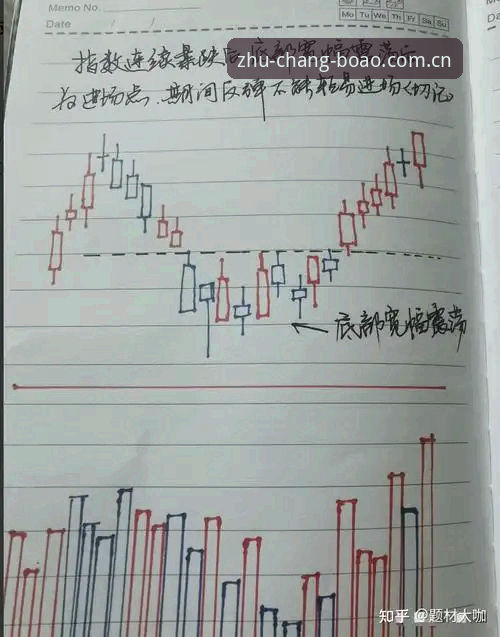 Memo No.
Mo Tu We Th Fr Sa Su
Date / /
指数连续暴跌后底部宽幅震荡后
zhu-chang-boao.com.cn
为进场点.期间反弹不能轻易进场(切记)
底部宽幅震荡
知乎 @题材大咖